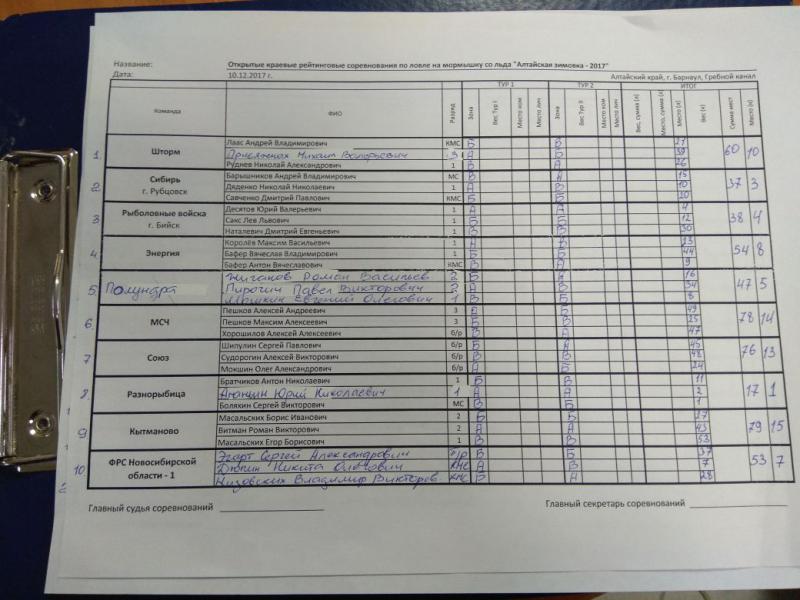 Название: Открытые краевые рейтинговые соревнования по ловле на мормышку со льда "Алтайская зимовка - 2017"
Дата: 10.12.2017 г. Алтайский край, г. Барнаул, Гребной канал
ТУР 1 ТУР 2 ИТОГ
Команда ФИО Разряд Зона Вес Тур I Место ком Место лич Зона Вес Тур II Место ком Место лич Вес, сумма (л) Место, сумма (л) Место (л) Вес (к) Сумма мест Место (к)
1. Шторм 60 10
Лаас Андрей Владимирович КМС Б В 21
Михаил Валерьевич 3 А Б
Руднев Николай Александрович 1 В А 26
2 Сибирь г. Рубцовск 37 3
Барышников Андрей Владимирович МС В А 15
Дяденко Николай Николаевич 1 А В 10
Савченко Дмитрий Павлович КМС Б Б 20
3 Рыболовные войска г. Бийск 38 4
Десятов Юрий Валерьевич 1 А А 4
Сакс Лев Львович 1 Б Б 12
Наталевич Дмитрий Евгеньевич 1 В В 30
4 Энергия 54 8
Королёв Максим Васильевич 1 А В 23
Бафер Вячеслав Владимирович 1 Б Б 44
Бафер Антон Вячеславович КМС В А 9
5. Полундра 47 5
Жиганов Роман Васильев 2 Б А 16
Пирогин Павел Викторович 2 А В 34
Евгений Олегович 1 В Б 8
6 МСЧ 78 14
Пешков Алексей Андреевич 3 Б А 49
Пешков Максим Алексеевич 3 Б Б 25
Хорошилов Алексей Алексеевич б/р В В 47
7 Союз 76 13
Шипулин Сергей Павлович б/р Б А 45
Судорогин Алексей Викторович б/р В В 48
Мокшин Олег Александрович б/р А Б 24
8 Разнорыбица 17 1
Братчиков Антон Николаевич 1 Б В 11
Юрий Николаевич 1 А А 2
Боляхин Сергей Викторович МС В Б 1
9 Кытманово 79 15
Масальских Борис Иванович 2 Б Б 27
Витман Роман Викторович 2 А А 43
Масальских Егор Борисович 1 В В 53
10 ФРС Новосибирской области - 1 53 7
Эгарт Сергей Александрович б/р Б Б 37
Дюпин Никита Олегович КМС А В 7
Низовских Владимир Викторов. КМС Б А 28
Главный судья соревнований Главный секретарь соревнований